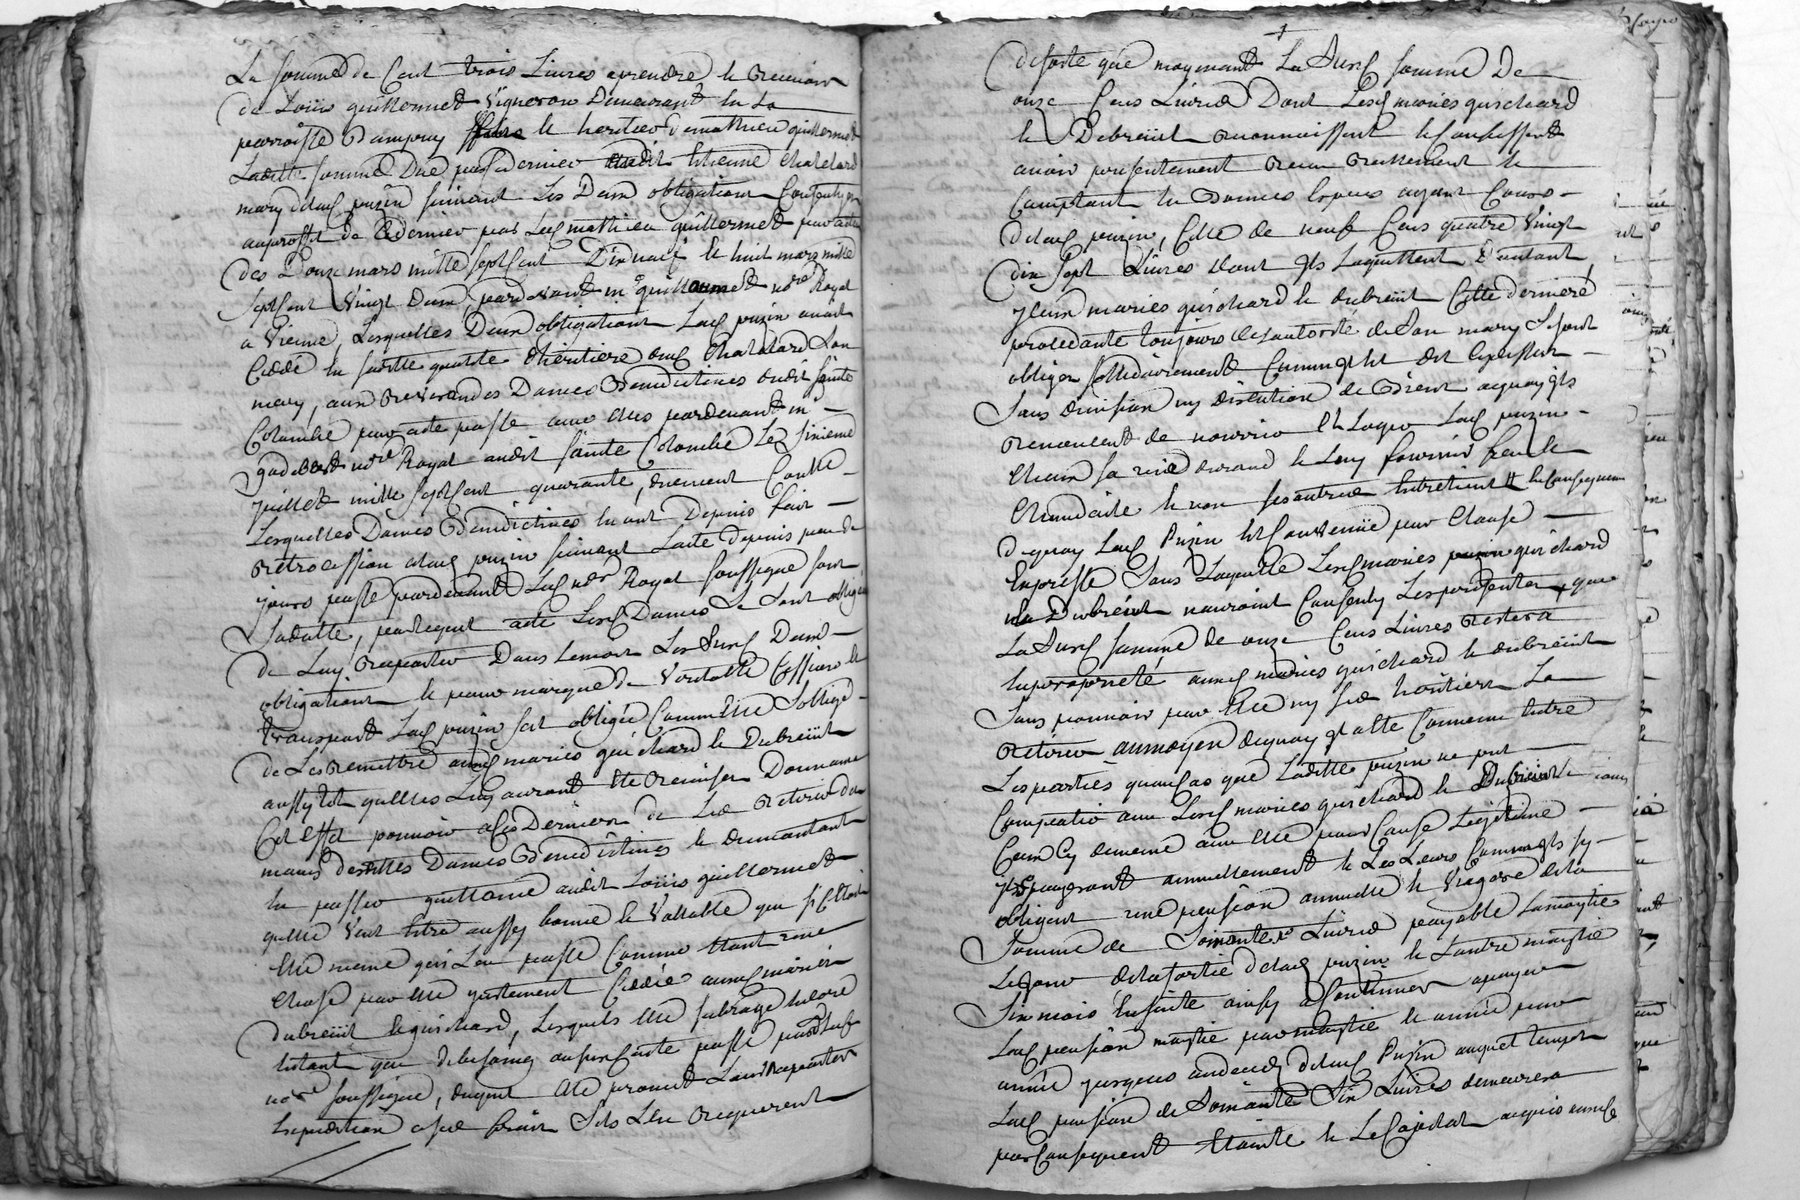 La somme de Cent trois Livres a prendre et recevoir
de Loüis guillermet Vigneron Demeurant en La
parroisse D'ampuy et heritier de mathieu guillermet
Laditte somme Due par dernier audit Etienne Chatelard
mary de lad puzin suivant Les Deux obligations Consenties
au proffit de Ce dernier par Led mathieu guillermet par actes
des Douze mars mille sept Cent Dix neuf et huit mars mille
sept Cent Vingt Deux, pardevant me guillermet nore Royal
a Vienne, Lesquelles Deux obligations Lad puzin avoit
Cédé en saditte qualité d'héritiere dud Chatelard son
mary, aux Reverendes Dames Benedictines dudit sainte
Colombe par acte passé avec Elles pardevant me
nore Royal audit sainte Colombe Le sixieme
juillet mille sept Cent quarante, duement Contollé
Lesquelles Dames Benedictines en ont Depuis fait
Retrocession a lad puzin suivant L'acte depuis peu de
jours passé pardevant Led nore Royal soussigné sous
Sa datte, par lequel acte Lesd Dames Se sont obligées
de Luy Rapporter Dans Le mois Les Susd Deux
obligations et pour marque de Veritable Cession et
transport Lad puzin s'est obligée Comme Elle s'oblige
de Les Remettre auxd mariés guichard et Dubreüil
aussy tôt qu'elles Luy auront Eté Remises Donnant
Cet Effet pouvoir a Ces Derniers de Les Retirer des
mains desdittes Dames Benedictines et du montant
en passer quittance audit Loüis guillermet
qu'elle Veut Etre aussy bonne et Vallable que si C'Etoit
Elle meme qui L'eu passée Comme Etant une
Chose par Elle justement Cédée auxd mariés
dubreüil et guichard, Lesquels Elle subroge Encore
Entant que de besoing au susd acte passé pard led
nore soussigné, duquel Elle promet Leur Rapporter
Expedition a ses frais S'ils L'en Requerent
De sorte que moyenant La Susd somme De
onze Cens Livres Dont Lesd mariés guichard
et Dubreüil Reconnoissent et Confessent
avoir presentement Receu Reellement et
Comptant En Bonnes Especes ayant Cours
de lad puzin, Celle de neuf Cens quatre Vingt
dix sept Livres dont Ils L'aquittent D'autant,
Iceux mariés guichard et dubreüil Cette derniere
procedante toujours de l'autorité de Son mary Se sont
obligés sollidairement L'un pour l'autre
Sans division ny discution de Biens aquoy Ils
Renoncent de nourrir Et Loger Lad puzin
Chés eux sa vie durand et Luy fournir
Chandaile et non ses autres Entretiens # En Consequence
de quoy Lad Puzin Est Convenüe par Clause
Expresse Sans Laquelle Lesd mariés guichard
et Dubreüil n'auroint Consenty Les presentes que
La Susd somme de onze Cens Livres Restera
En proprieté auxd mariés guichard et dubreüil
Sans pouvoir par Elle ny ses heritiers La
Retirer au moyen dequoy Il a Eté Convenu Entre
Les parties qu'au Cas que Laditte puzin ne put
Compatir avec Lesd mariés guichard et Dubreüil
Ceux Cy avec Elle pour Cause Légitime
Ils payeront annuellement et Les Leurs Comme Ils s'y
obligent une pension annuelle et Viagere de la
Somme de Soixante Livres payable La moytié
Le jour de la sortie de lad puzin et L'autre moytié
Six mois Ensuite ainsy a Continuer a payer
Lad pension moytié par moytié et année par
année jusques au deceds de lad Puzin auquel temps
Lad pension de Soixante Six Livres demeurera
par Consequent Etainte et Le Capital acquis auxd